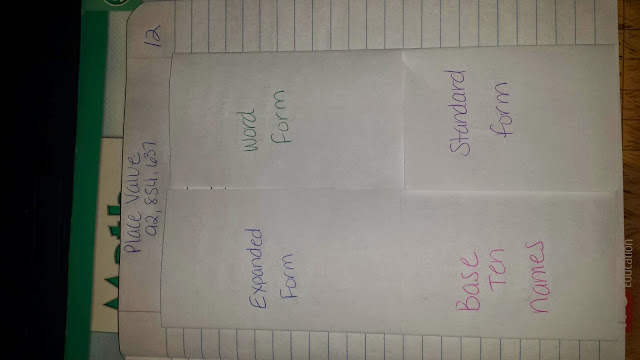 12
Place Value
92,854,637
Expanded
Form
Word
Form
Base
Ten
names
Standard
form
Education